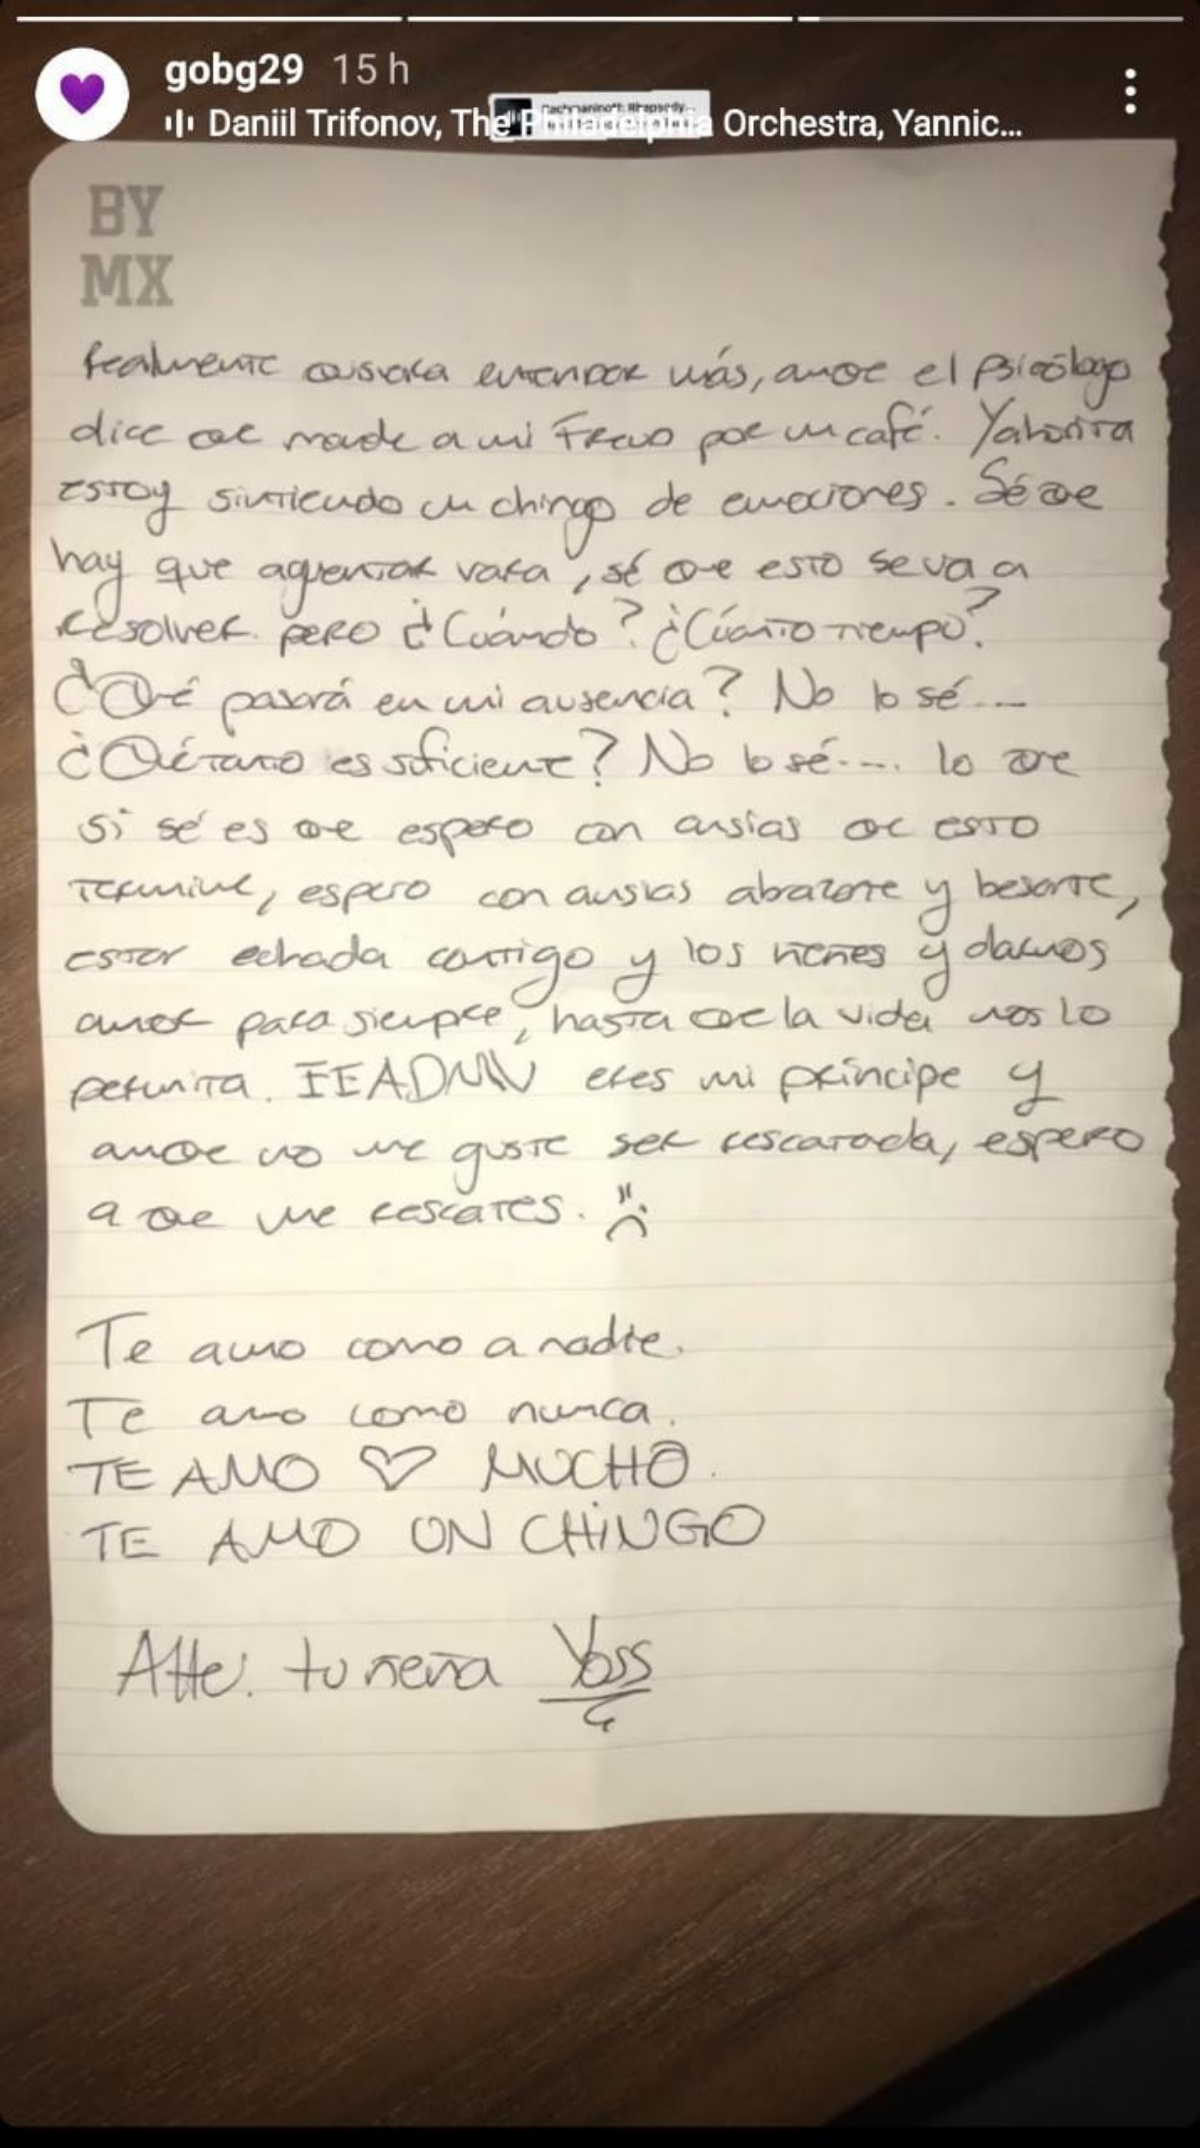 gobg29 15 h
Rachmaninoff: Rhapsody...
Daniil Trifonov, The Philadelphia Orchestra, Yannic...
BY
MX
Realmente quisiera entender más, aunque el psicólogo
dice que mande a mi Freud por un café. Yahorita
estoy sintiendo un chingo de emociones. Sé que
hay que aguentar vara, sé que esto se va a
resolver pero ¿Cuándo? ¿Cúanto tiempo?
¿Qué pasará en mi ausencia? No lo sé...
¿Qué tanto es suficiente? No lo sé.... lo que
si sé es que espero con ansias que esto
termine, espero con ansias abrazarte y besarte,
estar echada contigo y los nenes y darnos
amor para siempre, hasta que la vida nos lo
permita. IEADMV eres mi príncipe y
aunque no me guste ser rescatada, espero
a que me rescates.
Te amo como a nadie.
Te amo como nunca.
TE AMO ♡ MUCHO.
TE AMO UN CHiNGO
Atte. tu nena Yoss